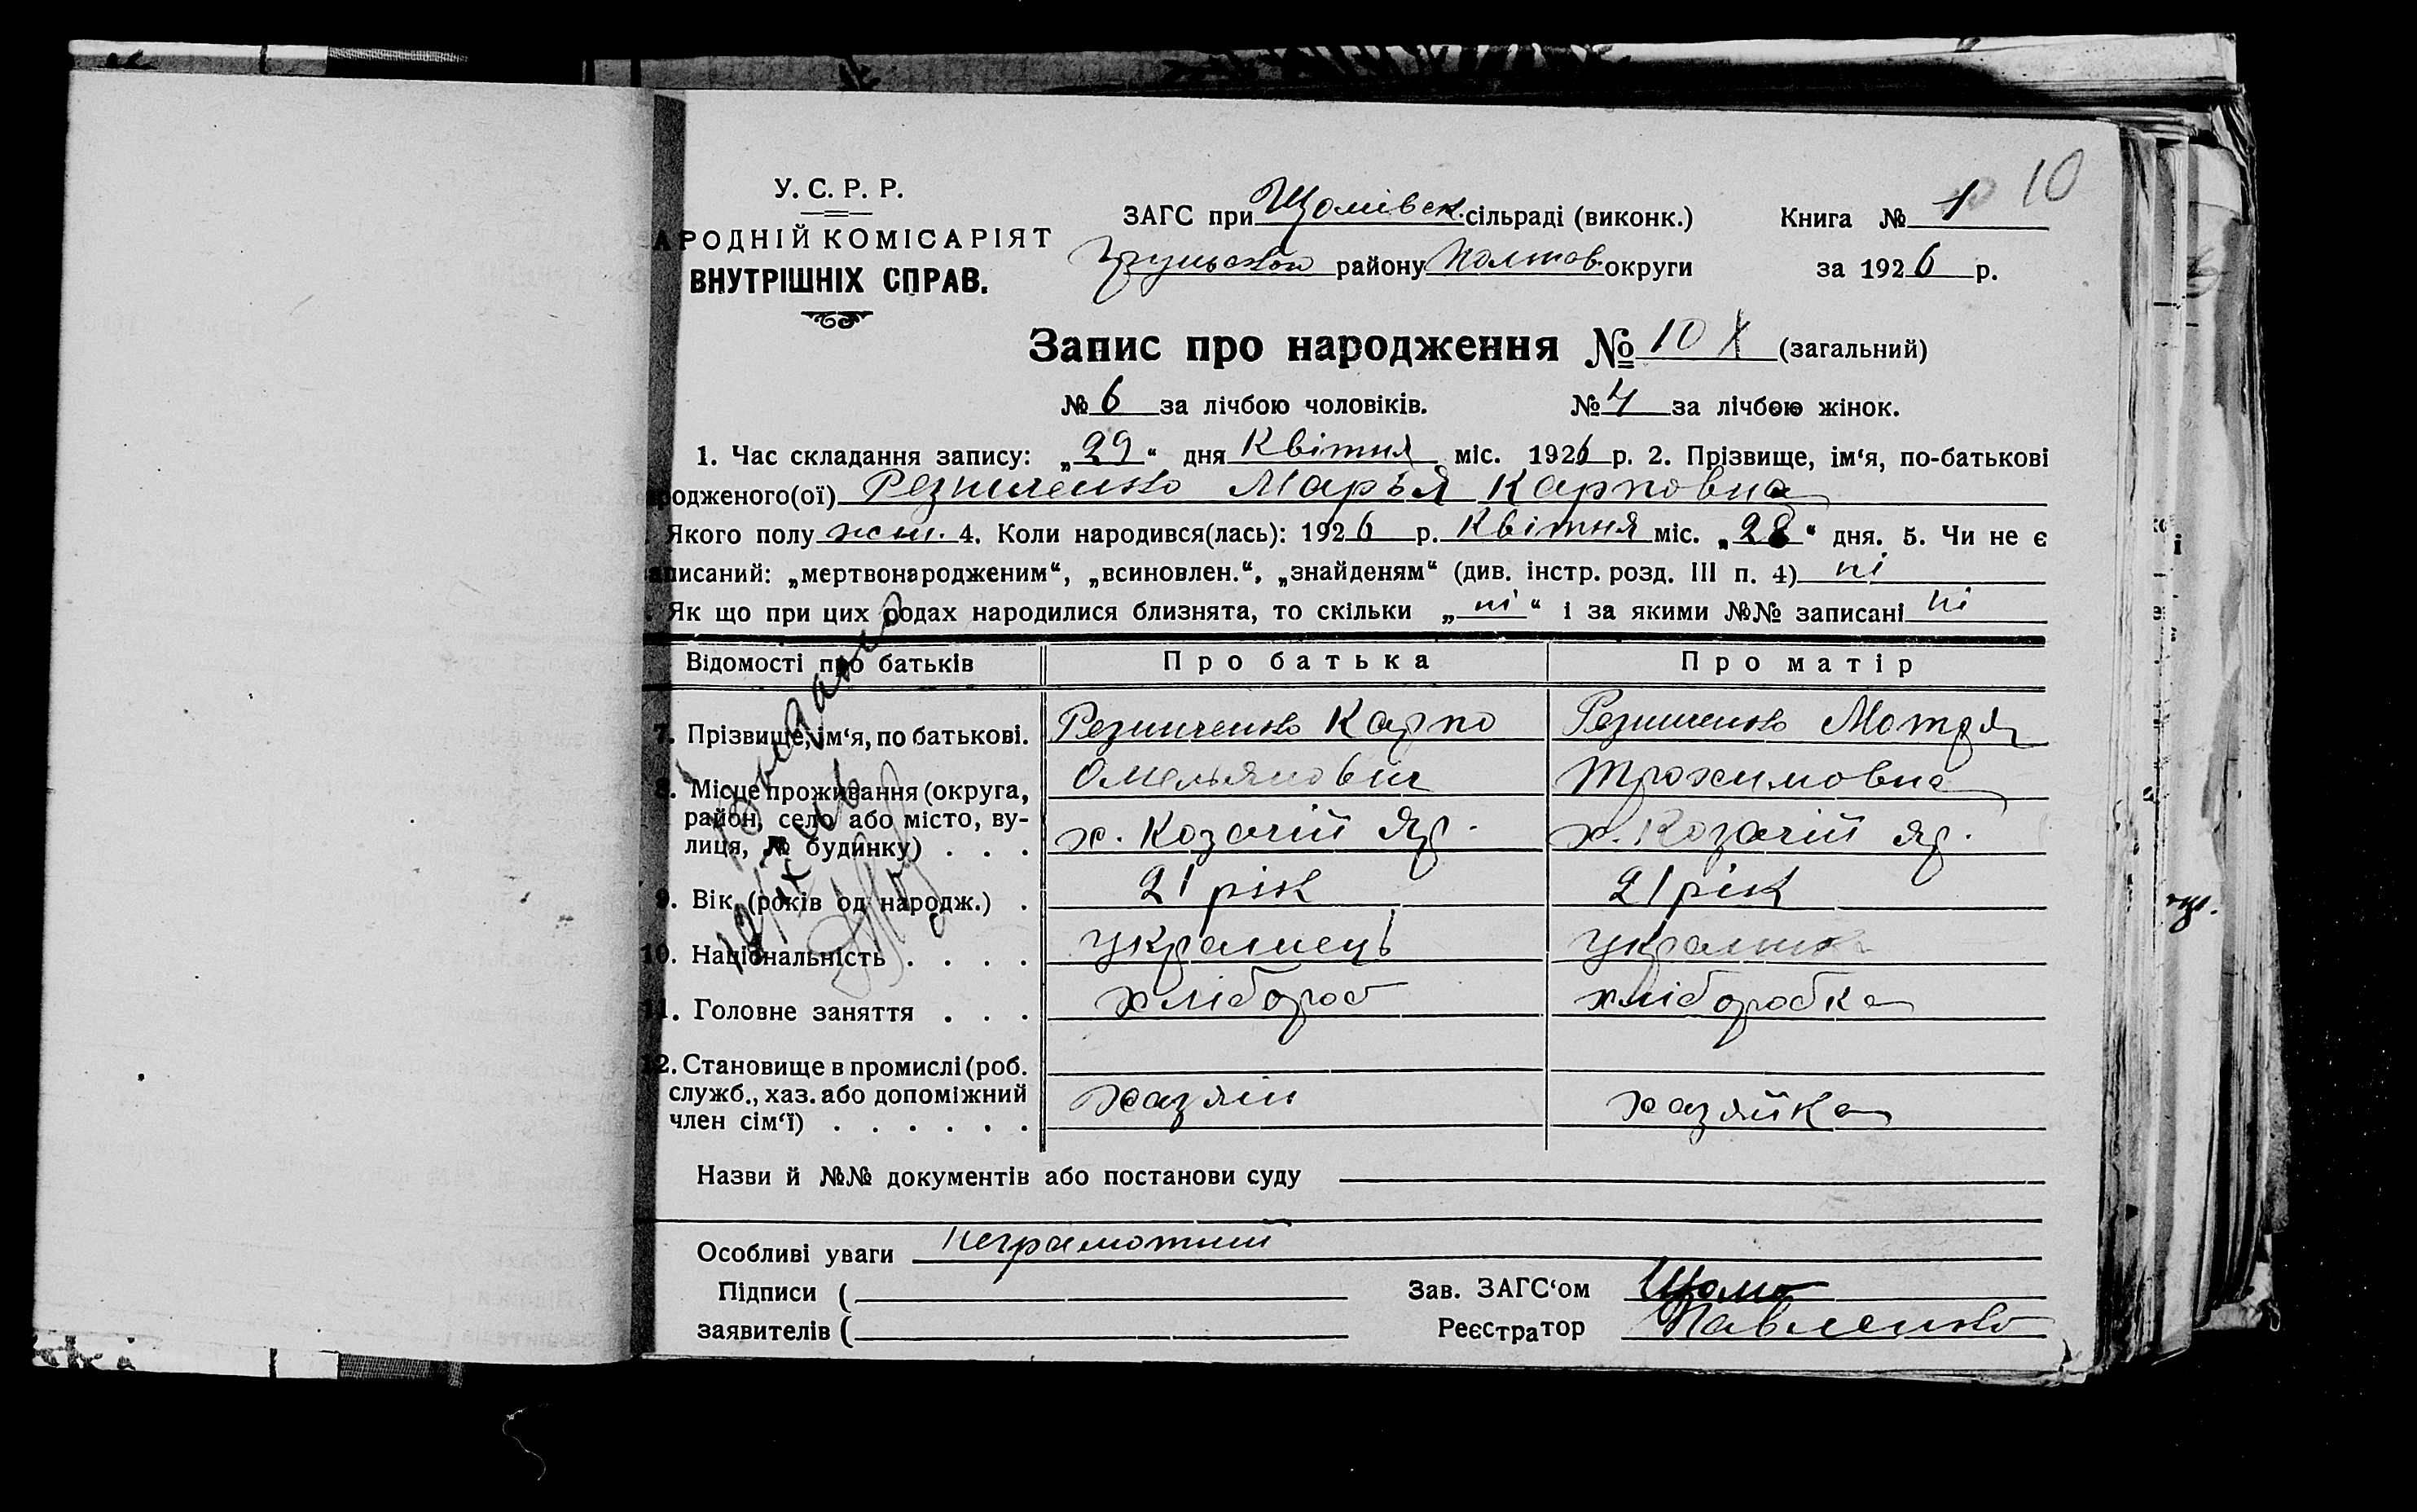 10
У. С. Р. Р.
АРОДНІЙ КОМІСАРІЯТ
ВНУТРІШНІХ СПРАВ.
ЗАГС при Щомівск. сільраді (виконк.)
району Полтав. округи
Книга № 1
за 1926 р.
Запис про народження № 10 (загальний)
№ 6 за лічбою чоловіків. № 4 за лічбою жінок.
1. Час складання запису: „29“ дня Квітня міс. 1926 р. 2. Прізвище, ім‘я, по-батькові
родженого(ої) Резниченко Марья Карповна
Якого полу жін. 4. Коли народився(лась): 1926 р. Квітня міс. „28“ дня. 5. Чи не є
аписаний: „мертвонародженим“, „всиновлен.“, „знайденям“ (див. інстр. розд. III п. 4) ні
Як що при цих родах народилися близнята, то скільки „ні“ і за якими №№ записані ні
Відомості про батьків Про батька Про матір
7. Прізвище, ім‘я, по батькові. Резниченко Карпо Резниченко Мотря
Омельянович Трохимовна
8. Місце проживання (округа,
район, село або місто, ву-
лиця, № будинку) . . . х. Козачій Яр. х. Козачій яр.
9. Вік (років од народж.) . 21 рік 21 рік
10. Національність . . . . українець українка
11. Головне заняття . . . хлібороб хліборобка
12. Становище в промислі (роб.
служб., хаз. або допоміжний
член сім‘ї) . . . . . . хазяін хазяйка
Назви й №№ документів або постанови суду
Особливі уваги неграмотний
Підписи (
заявителів (
Зав. ЗАГС‘ом Щома
Реєстратор Павленко